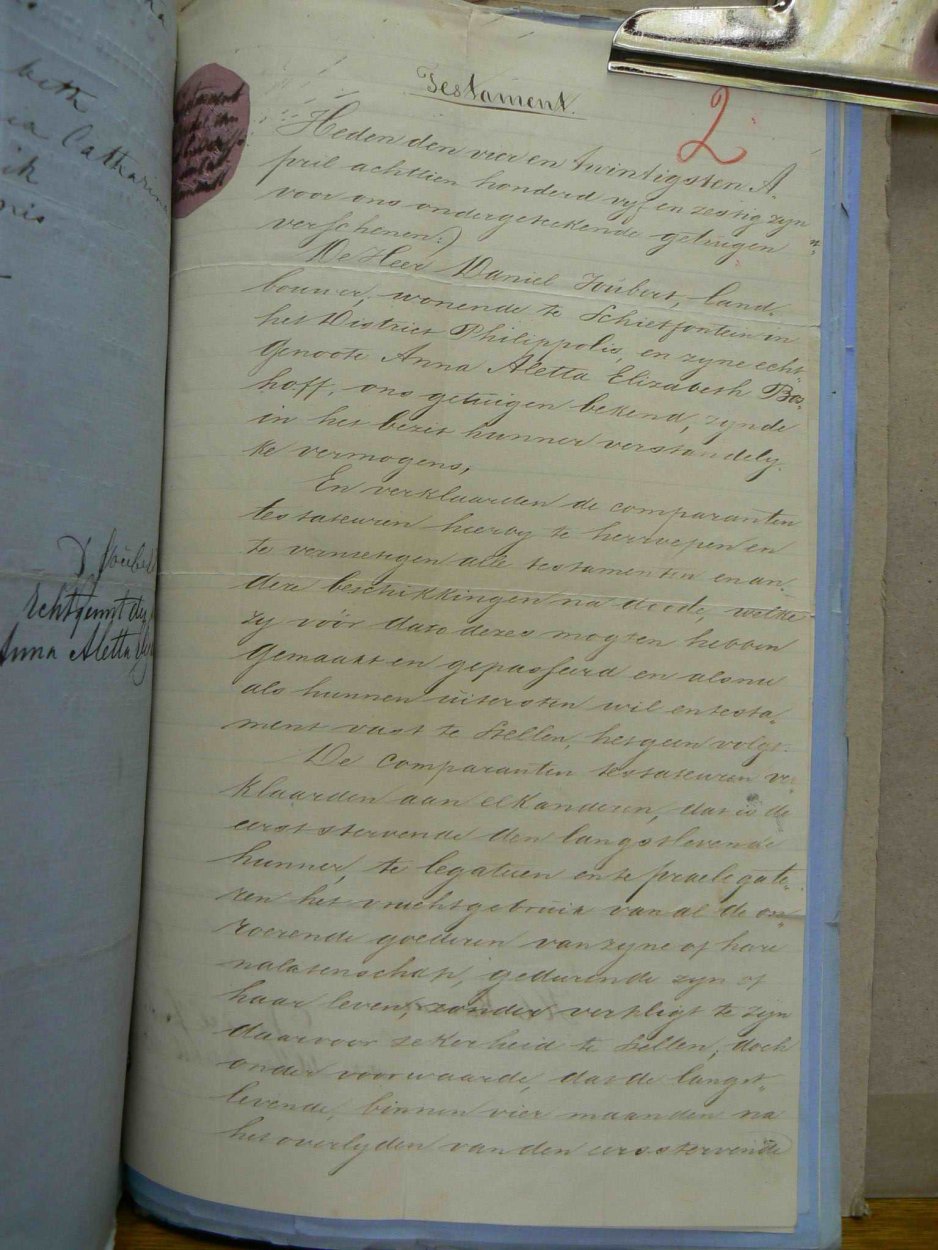 Catharina
ik
Joubert
Echtgenoot
Anna Aletta
Testament.
2
Heden den vier en twintigsten A
pril achttien honderd vyf en zestig zyn
voor ons ondergeteekende getuigen
verschenen:
De Heer Daniel Joubert, land-
bouwer, wonende te Schietfontein in
het District Philippolis, en zyne echt-
genoote Anna Aletta Elizabeth Bos-
hoff, ons getuigen bekend, zynde
in het bezit hunner verstandely-
ke vermogens,
En verklaarden de comparanten
testateuren hierby te herroepen en
te vernietigen alle testamenten en an-
dere beschikkingen na doode, welke
zy vóór dato dezes mogten hebben
gemaakt en gepasseerd en alsnu
als hunnen uitersten wil en testa-
ment vast te stellen, hetgeen volgt.
De comparanten testateuren ver
klaarden aan elkanderen, dat is de
eerststervende den langstlevende
hunner, te legateren en te praelegate-
ren het vruchtgebruik van al de on-
roerende goederen van zyne of hare
nalatenschap, gedurende zyn of
haar leven, zonder verpligt te zyn
daarvoor zekerheid te stellen, doch
onder voorwaarde, dat de langst-
levende, binnen vier maanden na
het overlyden van den eerststervende